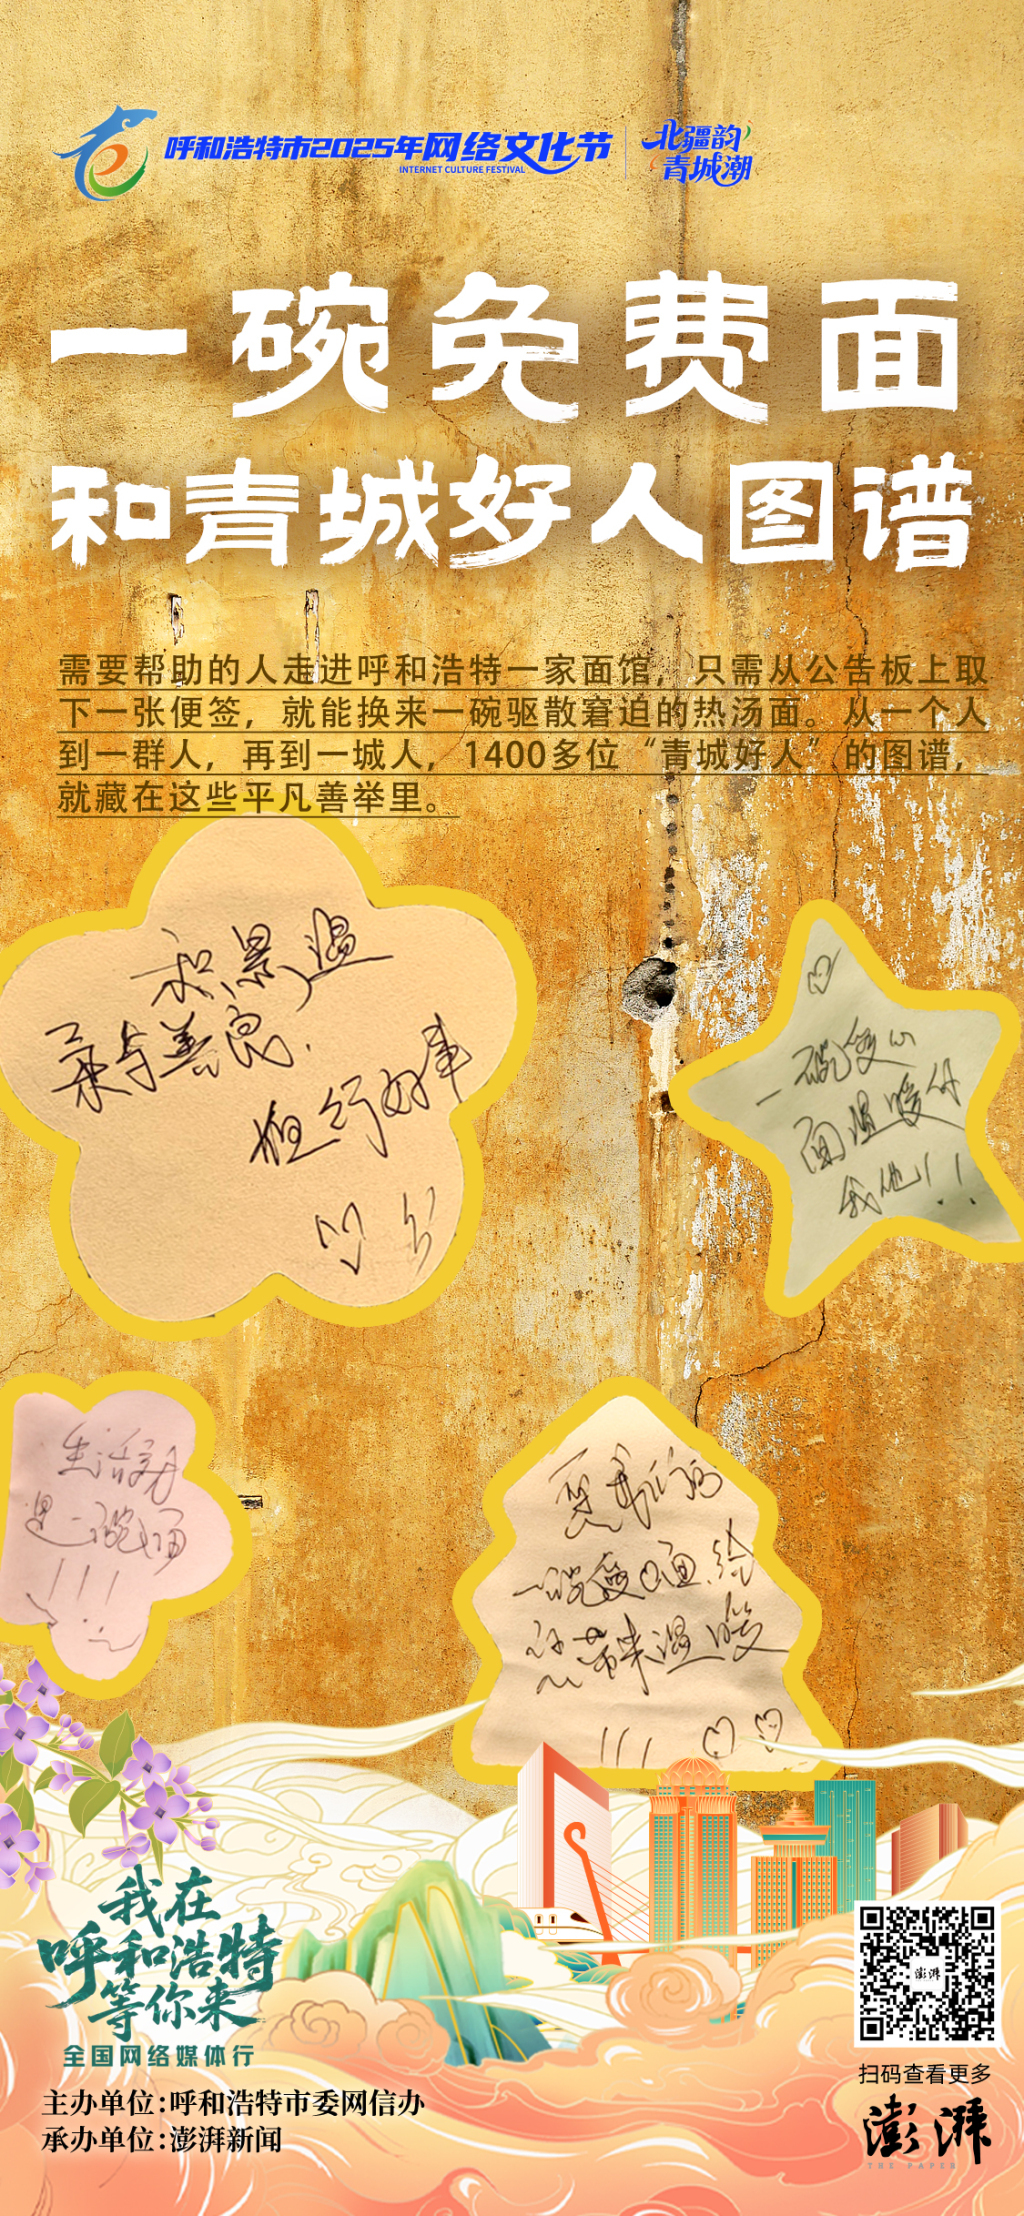 呼和浩特市2025年网络文化节
INTERNET CULTURE FESTIVAL
北疆韵
青城潮
一碗免费面
和青城好人图谱
需要帮助的人走进呼和浩特一家面馆，只需从公告板上取
下一张便签，就能换来一碗驱散窘迫的热汤面。从一个人
到一群人，再到一城人，1400多位“青城好人”的图谱，
就藏在这些平凡善举里。
积累温
柔与善良.
担行好事
一碗爱心
面温暖你
我他！！
生活努力
是一碗汤
!!!
一碗爱心面,给
您带来温暖
!!!
我在
呼和浩特
等你来
全国网络媒体行
主办单位:呼和浩特市委网信办
承办单位:澎湃新闻
澎湃
扫码查看更多
澎湃
THE PAPER